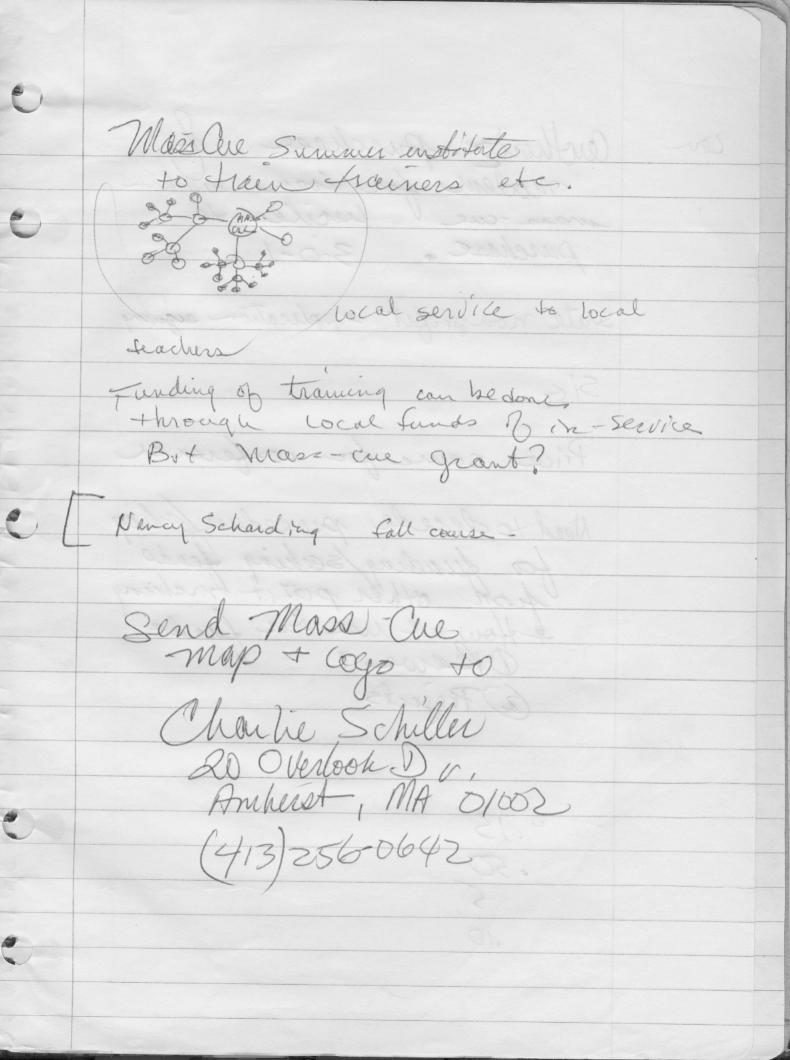 MassCue Summer institute
to train trainers etc.
MASS
CUE
local service to local
teachers
Funding of training can be done
through local funds of in-service
But Mass-cue grant?
[ Nancy Scharding fall course -
Send Mass-Cue
map + logo to
Charlie Schiller
20 Overlook Dr.
Amherst, MA 01002
(413) 256-0642